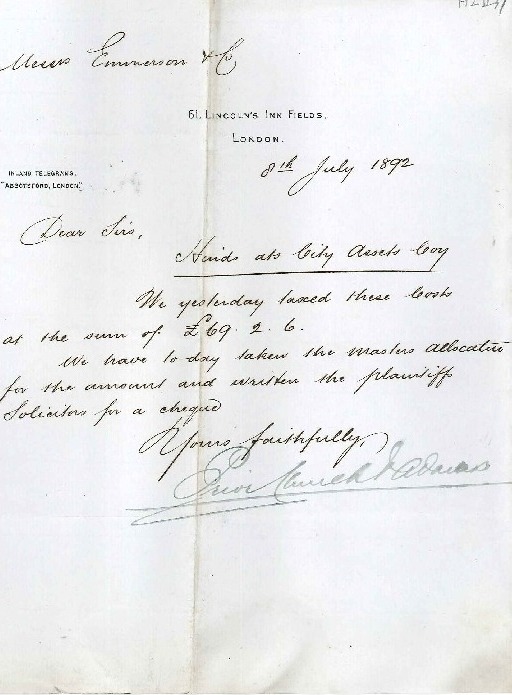 Messrs Emmerson & Co
61, Lincoln's Inn Fields,
London.
8th July 1892
Inland Telegrams,
"Abbotsford, London."
Dear Sirs,
Hinds ats City Assets Coy
We yesterday taxed these Costs
at the sum of £69. 2. 6.
We have to day taken the Masters allocatur
for the amount and written the plaintiffs
Solicitors for a cheque
Yours faithfully,
Church & Adams